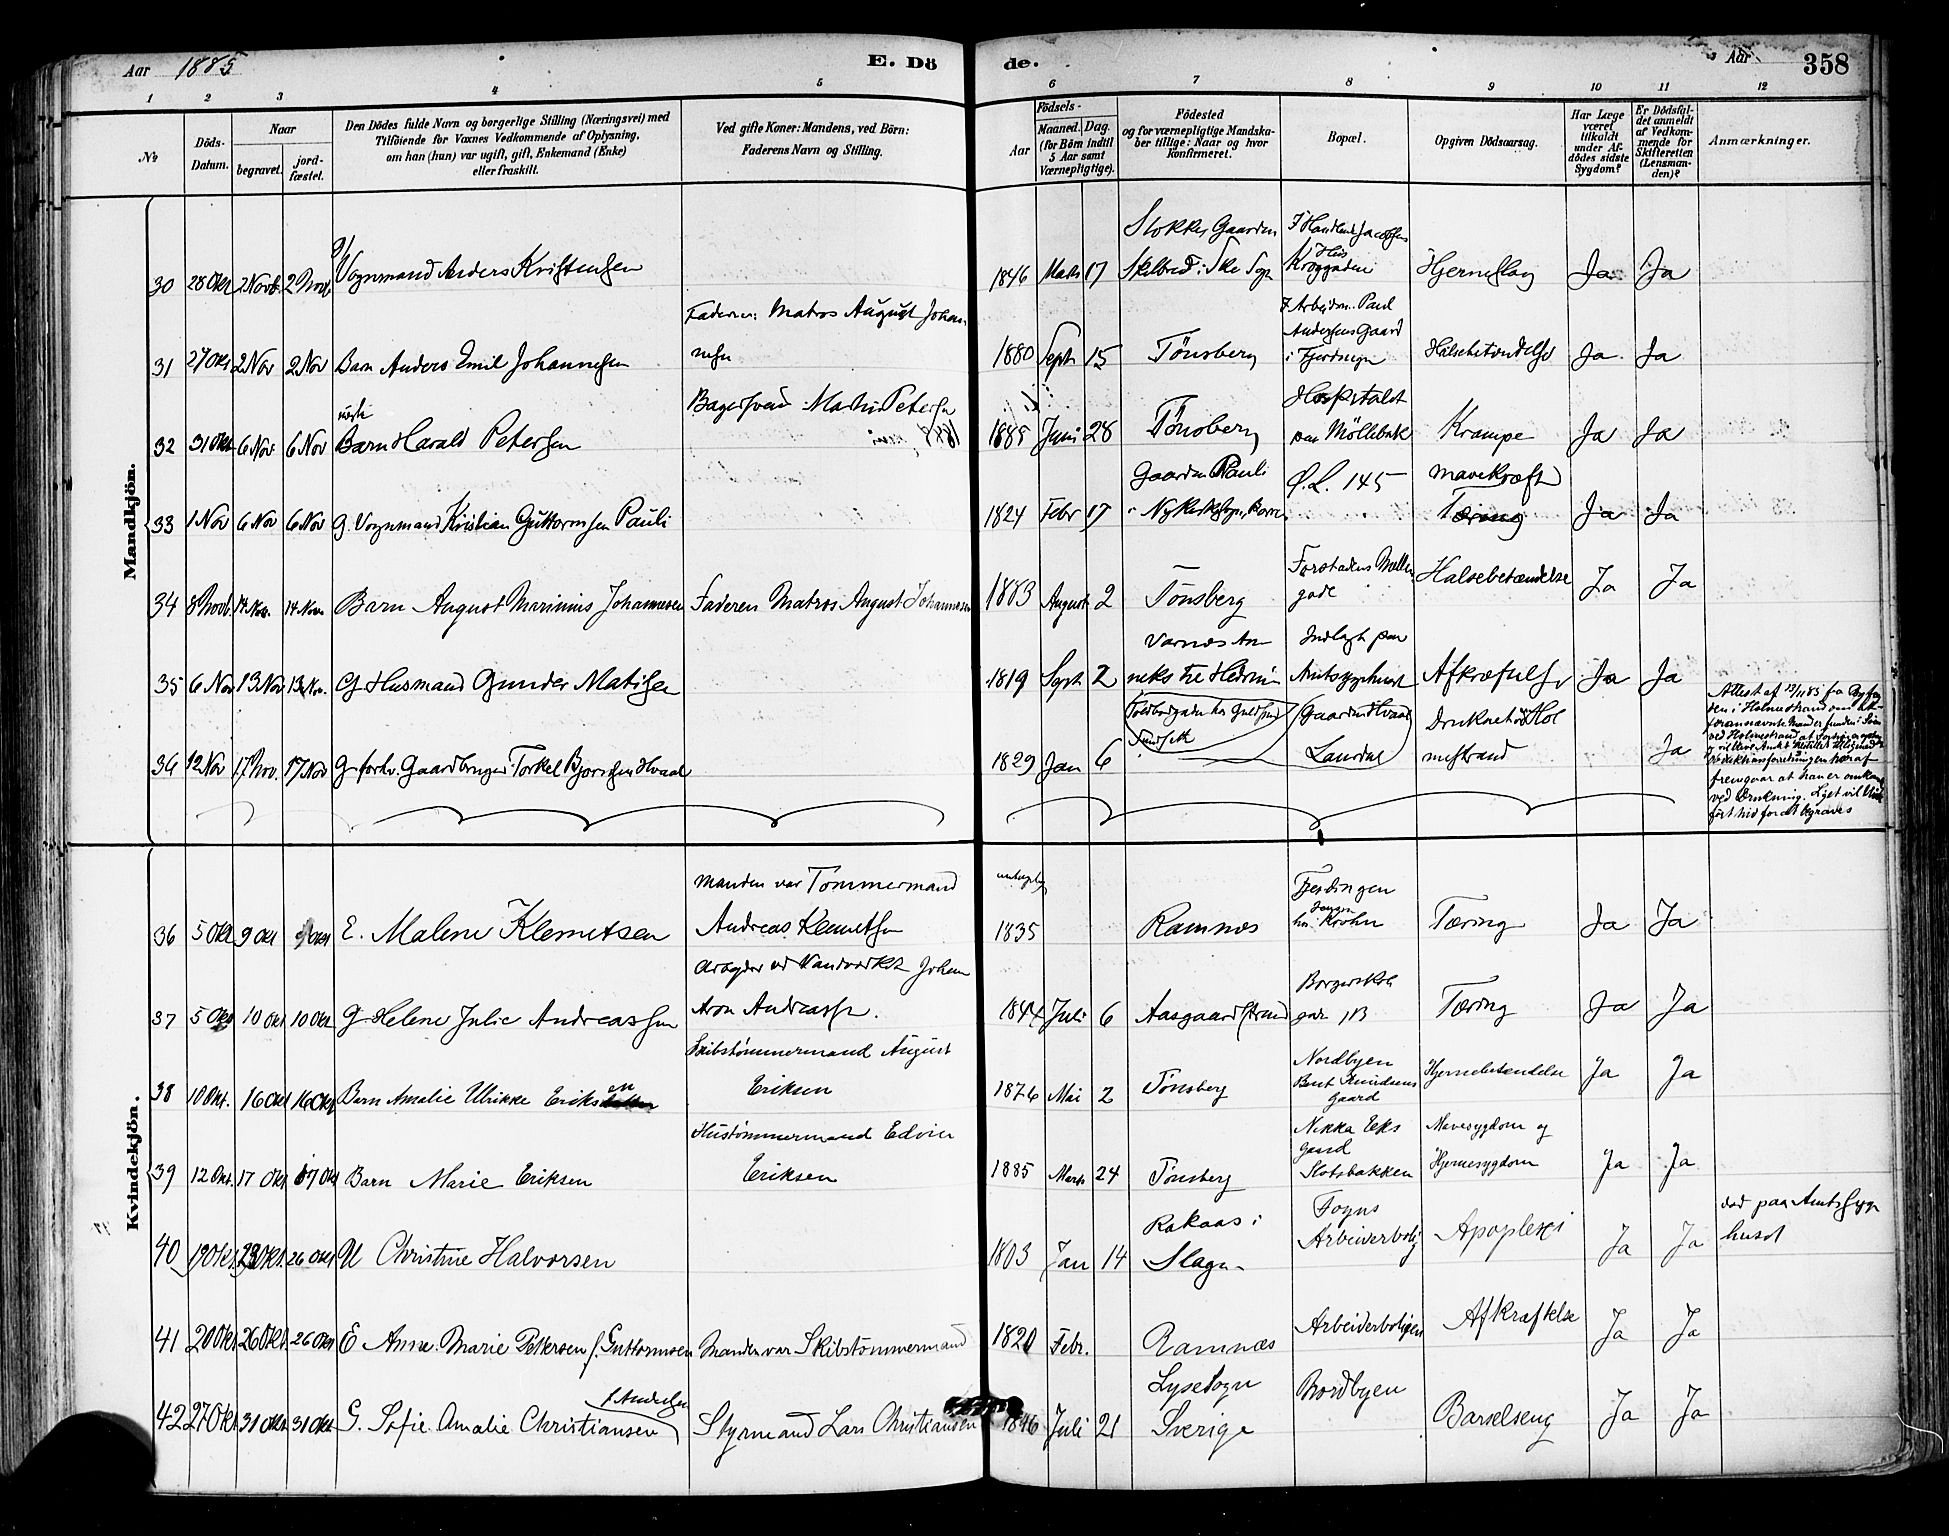 Aar 1885 E. Dö
de. Aar 358
1 2 3 4 5 6 7 8 9 10 11 12
No
Döds-Datum.
Naar
begravet.
jordfæstet.
Den Dödes fulde Navn og borgerlige Stilling (Næringsvei) med
Tilföiende for Voxnes Vedkommende af Oplysning,
om han (hun) var ugift, gift, Enkemand (Enke)
eller fraskilt.
Ved gifte Koner: Mandens, ved Börn:
Faderens Navn og Stilling.
Födsels-
Aar
Maaned.
Dag.
(for Börn indtil
5 Aar samt
Værnepligtige).
Födested
og for værnepligtige Mandska-
ber tillige: Naar og hvor
konfirmeret.
Bopæl.
Opgiven Dödsaarsag.
Har Læge
været
tilkaldt
under Af-
dödes sidste
Sygdom?
Er Dödsfal-
det anmeldt
af Vedkom-
mende for
Skifteretten
(Lensman-
den)?
Anmærkninger.
Mandkjön.
30 28 Okt 2 Novb. 2 Novb g/ Vognmand Anders Kristensen 1846 Marts 17 Krøggaden Hjerneslag Ja Ja
Faderen: Matros August Johan-
31 27 Okt 2 Nov 2 Nov Barn Anders Emil Johannesen nesen 1880 Septr 15 Tönsberg Arbeidsm. Paul Andersens Gaard i Fjerdingen Halsebetændelse Ja Ja
32 31 Okt 6 Nov 6 Nov Barn Harald Petersen Bagersvend Martin Petersen 1885 Juni 28 Tönsberg Hospitalet paa Möllebak Krampe Ja Ja
33 1 Nov 6 Nov 6 Nov g. Vognmand Kristian Guttormsen Pauli 1824 Febr 17 Gaarden Pauli i Ø.L. 145 Mavekræft Tæring Ja Ja
34 8 Novb. 14 Nov. 14 Nov. Barn August Marinius Johannesen Faderen Matros August Johannesen 1883 August 2 Tönsberg Forstadens Möllegade Halsebetændelse Ja Ja
35 6 Nov 13 Nov 13 Nov. g Husmand Gunder Matisen 1819 Septr 2 Varnæs Anneks til Hedrum Indlagt paa Amtssygehuset Afkræftelse Ja Ja
36 12 Nov 17 Nov. 17 Nov g forhv. Gaardbruger Torkel Bjørnsen Hvaal 1829 Jan 6 Gaarden Hvaal Laurdal Druknet ved Holmestrand Ja
Attest af 13/11 85 fra Byfog-
den i Holmestrand om at
forannavnte Mand er funden i Søen
ved Holmestrand
fremgaar at han er omkom
ved Drukning. Liget vil blive
ført hid for at begraves
Kvindekjön.
Manden var Tømmermand
36 5 Okt 9 Okt 9 Okt E. Malene Klemetsen Andreas Klemetsen 1835 Ramnes Fjerdingen hos Jensen Krohn Tæring Ja Ja
37 5 Okt 10 Okt 10 Okt g Helene Julie Andreassen Arbejder ved Vandværket Johan Aron Andreassen. 1844 Juli 6 Aasgaardstrand Borgerskolegar. Tæring Ja Ja
Skibstømmermand August
38 10 Okt. 16 Okt 16 Okt Barn Amalie Ulrikke Eriksen Eriksen 1876 Mai 2 Tønsberg Nordbyen Bent Knudsens Gaard Hjernebetændelse Ja Ja
Hustømmermand Edvin
39 12 Okt. 17 Okt 17 Okt Barn Marie Eriksen Eriksen 1885 Marts 24 Tønsberg Nikka Eeks Gaard Slotsbakken Mavesygdom og Hjernesygdom Ja Ja
40 19 Okt. 23 Okt. 26 Okt U Christine Halvorsen 1803 Jan 14 Rakaas i Slagen Foyns Arbeiderbolig Apoplexi Ja Ja død paa Amtssygehuset
41 20 Okt. 26 Okt. 26 Okt E Anne Marie Pettersen f. Guttormsen Manden var Skibstømmermand 1820 Febr. Ramnæs Arbeiderboligen Afkræftelse Ja Ja
42 27 Okt 31 Okt. 31 Okt G. Sofie Amalie Christiansen f. Andersen Styrmand Lars Christiansen 1846 Juli 21 Lysekogn Sverige Nordbyen Barselseng Ja Ja